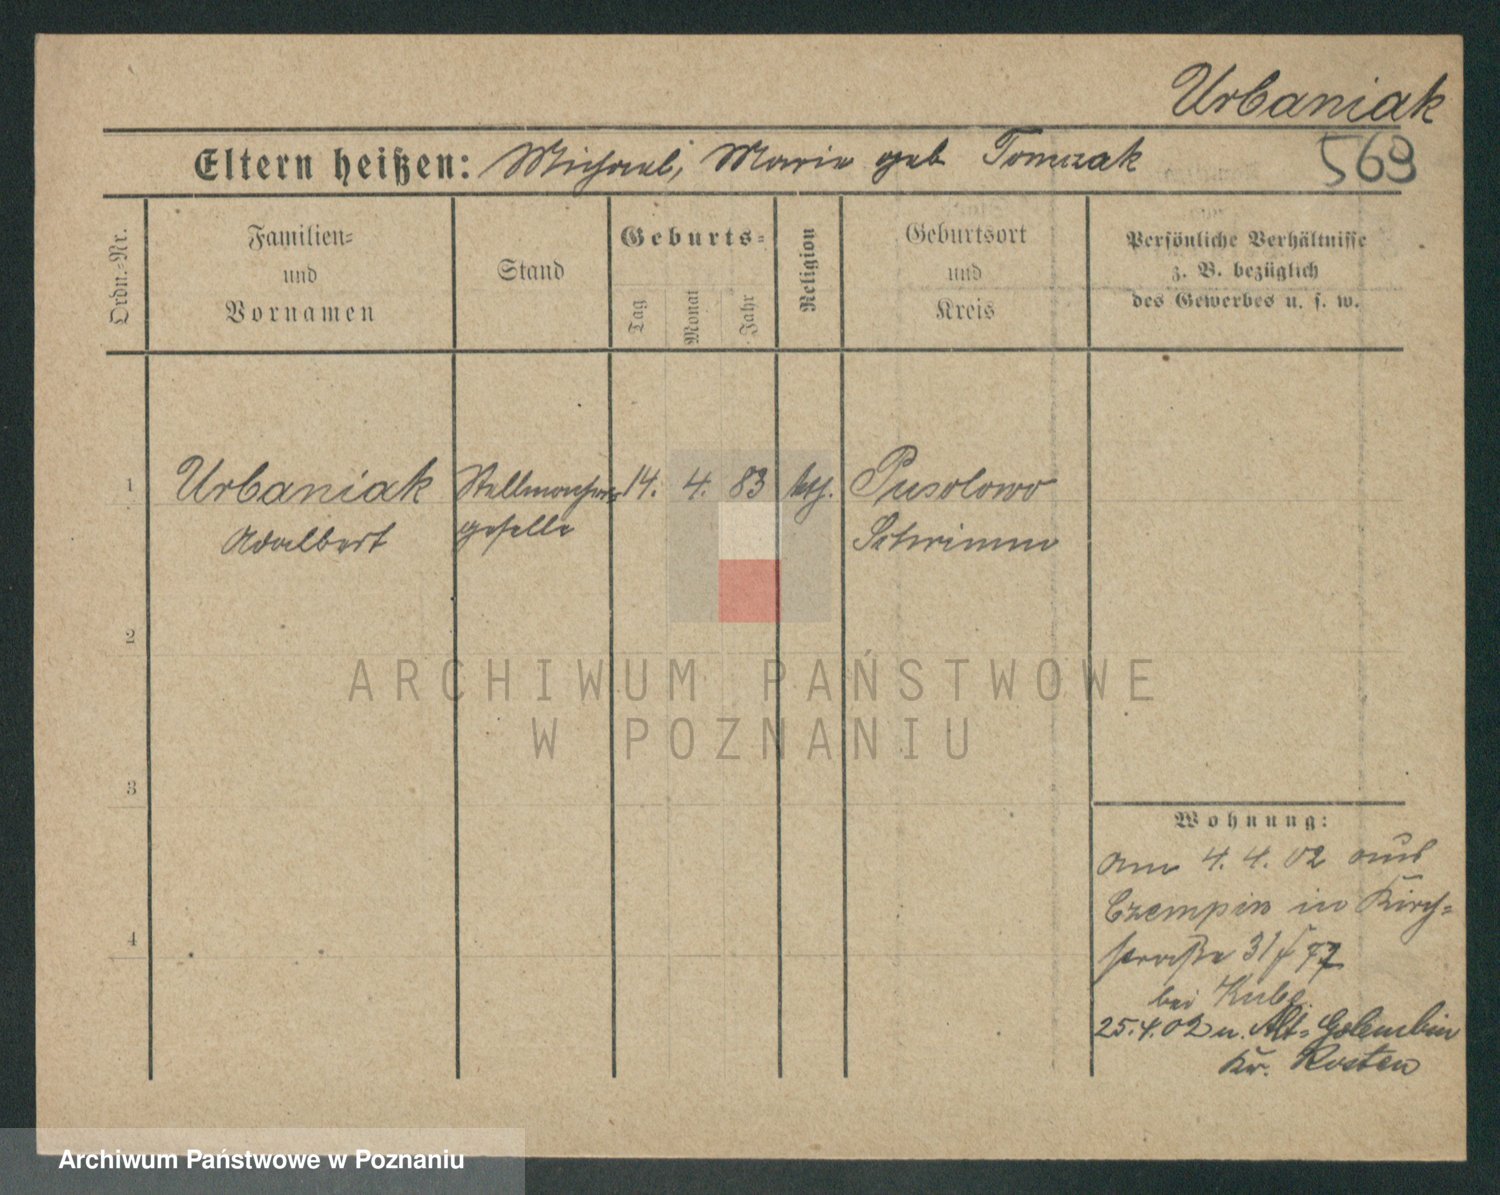 Urbaniak
Eltern heißen: Michael, Marie geb Tomczak
569
Ordn.-Nr.
Familien-
und
Vornamen
Stand
Geburts-
Tag
Monat
Jahr
Religion
Geburtsort
und
Kreis
Persönliche Verhältnisse
z. B. bezüglich
des Gewerbes u. s. w.
1 Urbaniak Stellmacher 14. 4. 83 kth. Pusolowo
Adalbert geselle Schrimm
2
3
4
Wohnung:
am 4. 4. 02 aus
Czempin in Kirch-
straße 31
bei
25.4.02 n. Alt-Golembin
Kr. Kosten
ARCHIWUM PAŃSTWOWE
W POZNANIU
Archiwum Państwowe w Poznaniu